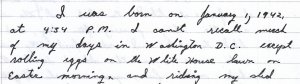 I was born on January 1, 1942,
at 4:34 P.M. I can't recall much
of my days in Washington D.C. except
rolling eggs on the White House lawn on
Easter morning, and riding my sled